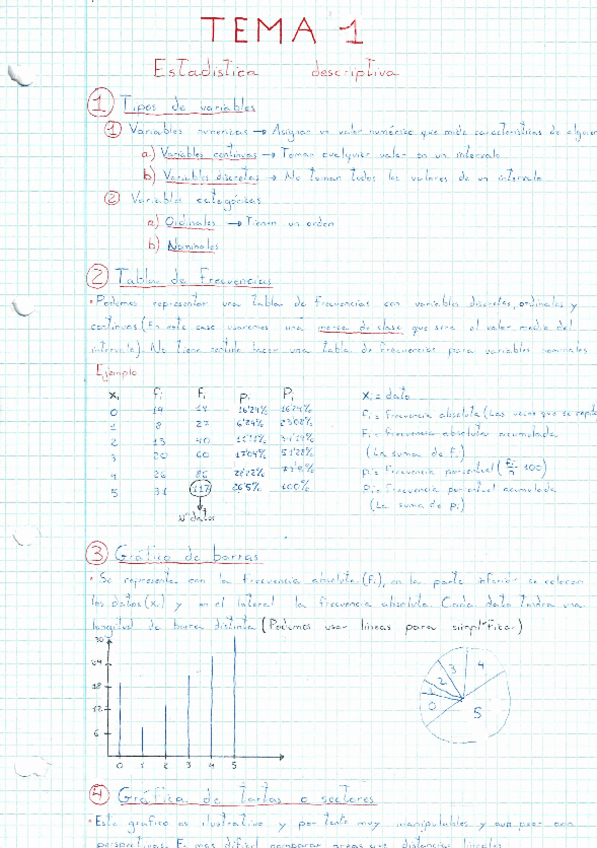 TEMA 1
Estadística descriptiva
1 Tipos de variables
1 Variables numéricas → Asignar un valor numérico que mide características de
a) Variables continuas → Toman cualquier valor en un intervalo
b) Variables discretas → No toman todos los valores de un intervalo
2 Variables categóricas
a) Ordinales → Tienen un orden
b) Nominales
2 Tablas de Frecuencias
• Podemos representar una tabla de frecuencias con variables discretas, ordinales y
continuas (En este caso usaremos una marca de clase que será el valor medio del
intervalo). No tiene sentido hacer una tabla de frecuencias para variables nominales
Ejemplo
xi fi Fi pi Pi xi = dato
0 19 19 16'24% 16'24% fi = Frecuencia absoluta (Las veces que se
1 8 27 6'84% 23'08% Fi = Frecuencia absoluta acumulada
2 13 40 (La suma de fi)
3 20 60 17'09% 51'28% pi = Frecuencia porcentual (fi/n · 100)
4 26 86 Pi = Frecuencia porcentual acumulada
5 31 117 26'5% 100% (La suma de pi)
Nº datos
3 Gráfico de barras
• Se representa con la frecuencia absoluta (fi), en la parte inferior se colocan
los datos (xi) y en el lateral la frecuencia absoluta. Cada dato tendrá una
longitud de barra distinta (Podemos usar líneas para simplificar)
30
24
18
12
6
0 1 2 3 4 5
0 1 2 3 4 5
4 Gráfica de tartas o sectores
• Este gráfico es ilustrativo y por tanto muy manipulables y aun peor con
perspectivas. Es más difícil comparar áreas que distancias lineales